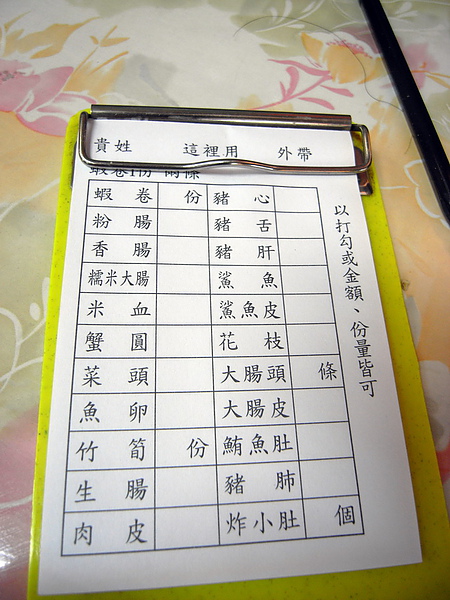 貴姓 這裡用 外帶
蝦卷1份 兩條
蝦卷 份 豬心
粉腸 豬舌
香腸 豬肝
糯米大腸 鯊魚
米血 鯊魚皮
蟹圓 花枝
菜頭 大腸頭 條
魚卵 大腸皮
竹筍 份 鮪魚肚
生腸 豬肺
肉皮 炸小肚 個
以打勾或金額、份量皆可